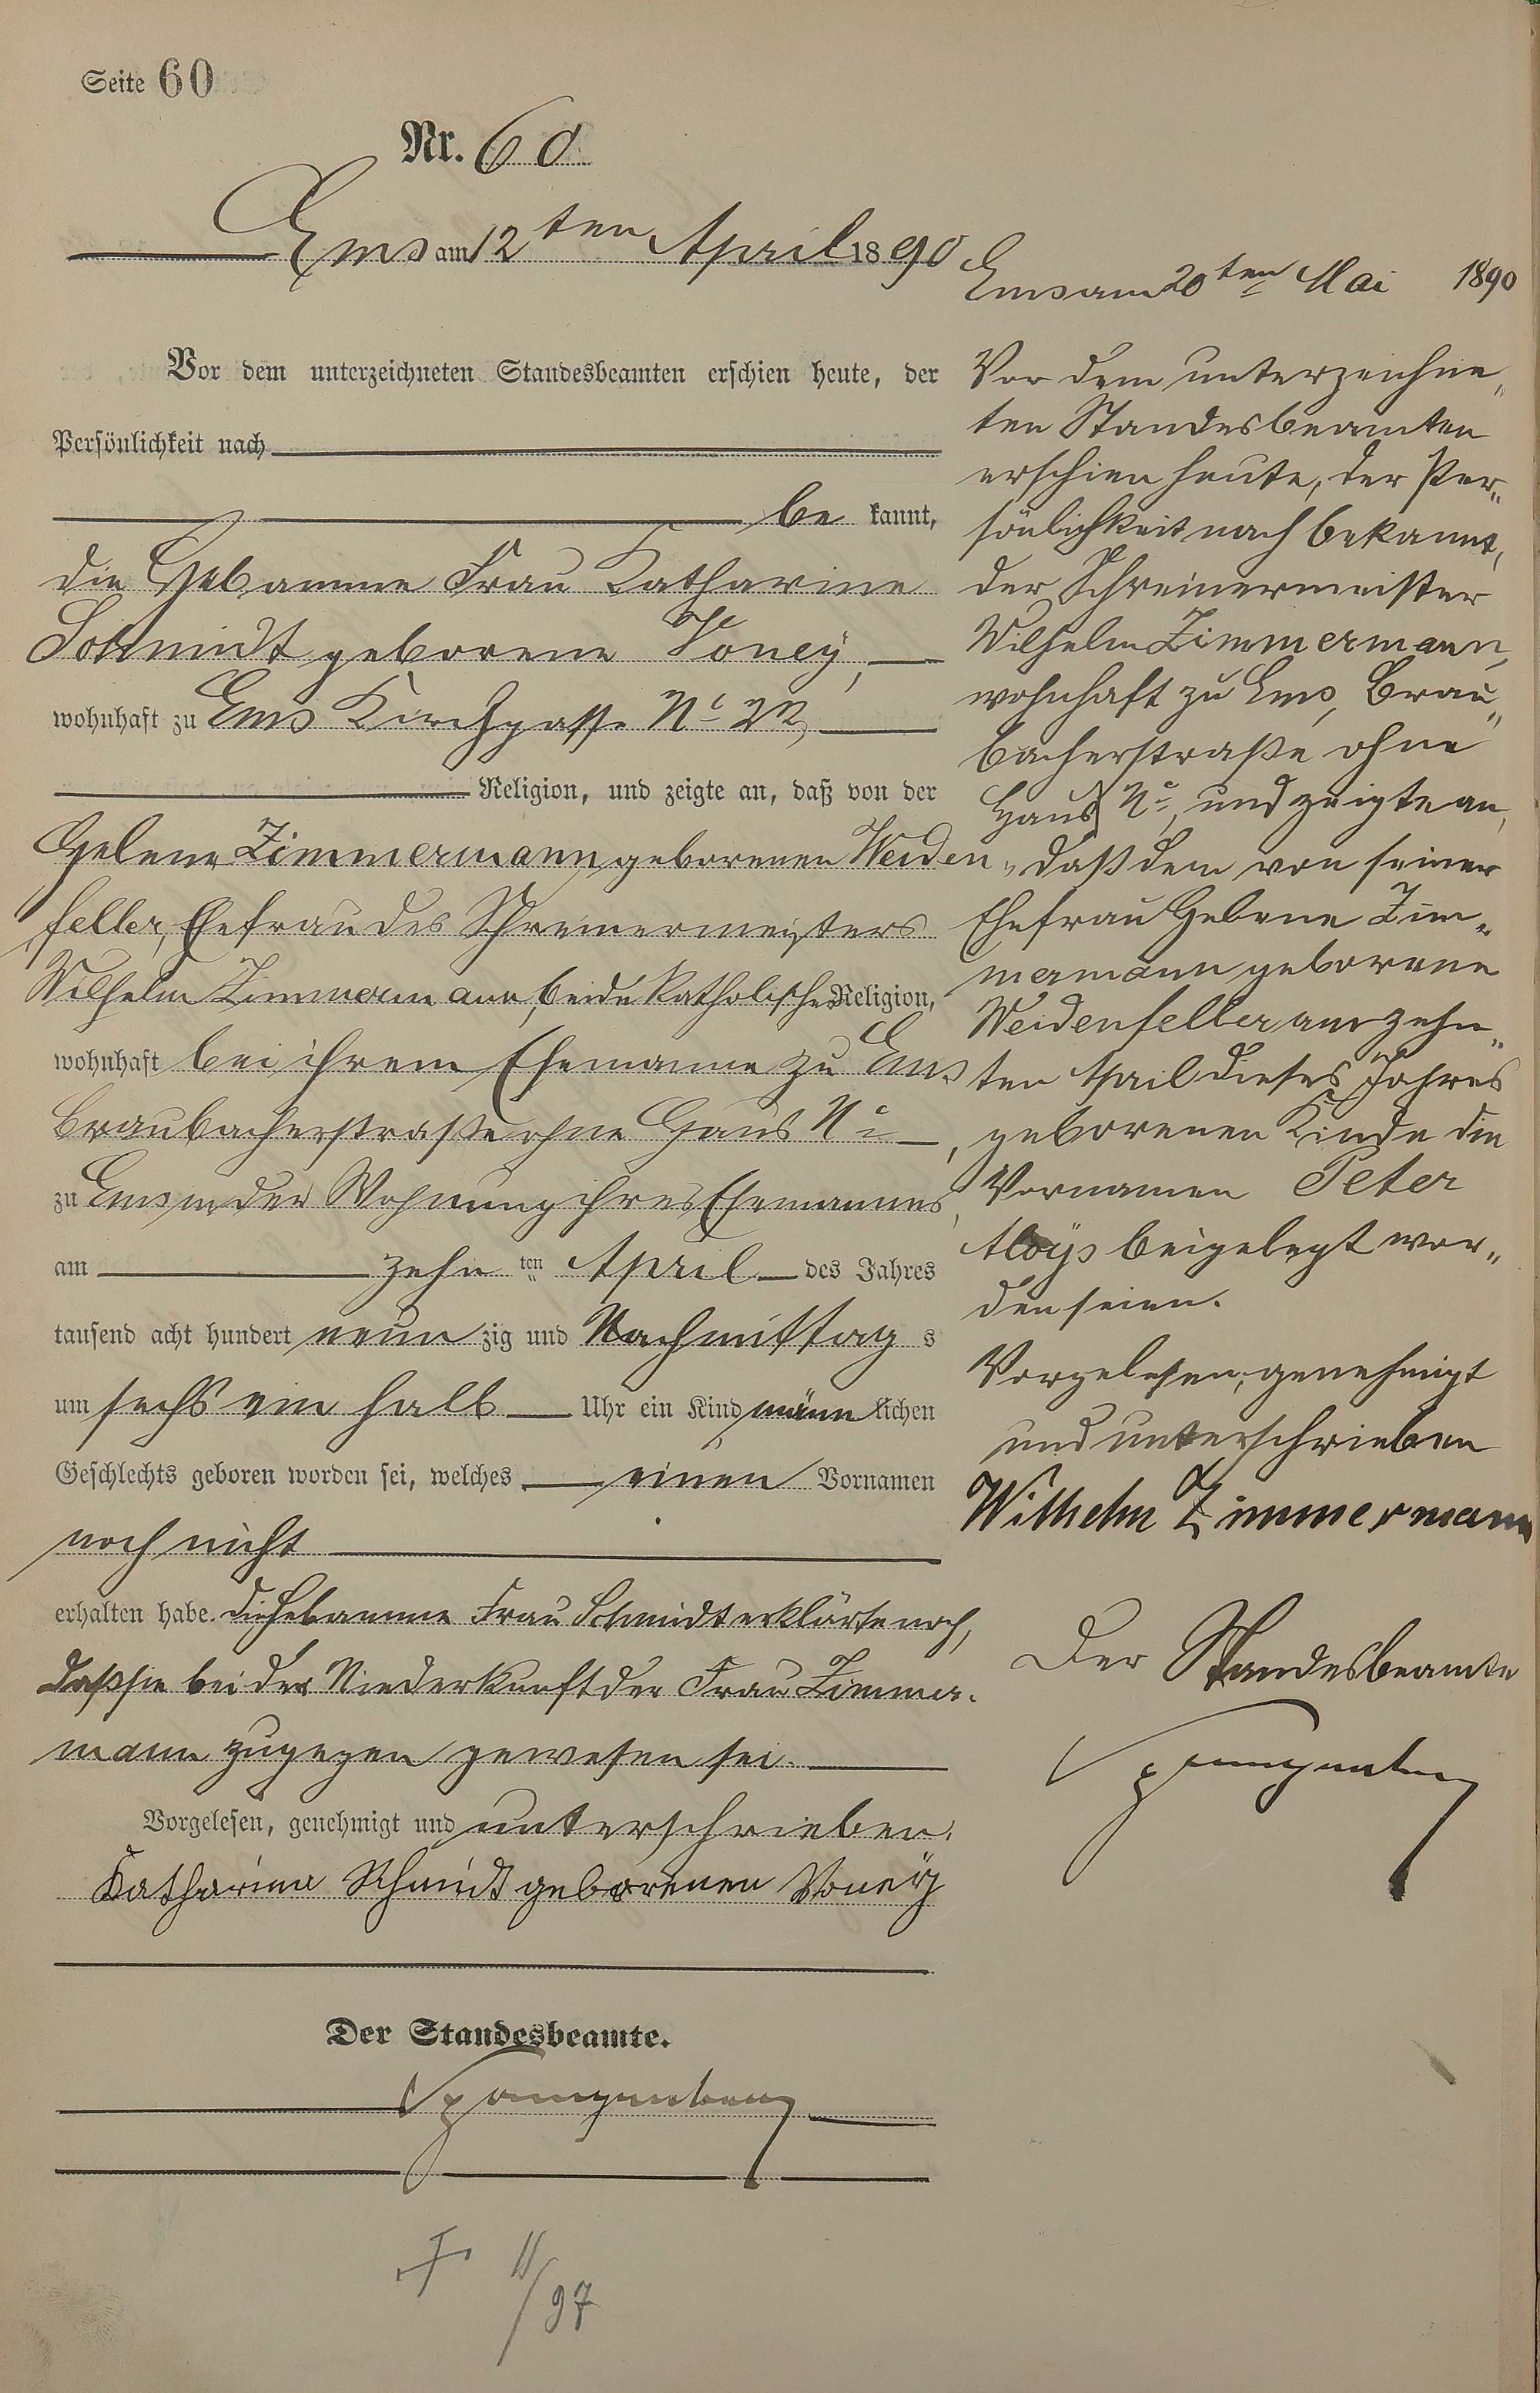 Seite 60
Nr. 60
Ems am 12ten April 1890
Vor dem unterzeichneten Standesbeamten erschien heute, der
Persönlichkeit nach
be kannt,
die Hebamme Frau Katharine
Schmidt geborene Voney,
wohnhaft zu Ems Kirchgasse No 22,
Religion, und zeigte an, daß von der
Helene Zimmermann geborenen Weiden„
feller, Ehefrau des Schreinermeisters
Wilhelm Zimmermann, beide katholischer Religion,
wohnhaft bei ihrem Ehemanne zu Ems
Braubacherstraße ohne Haus No,
zu Ems in der Wohnung ihres Ehemannes,
am zehn ten April des Jahres
tausend acht hundert neun zig und Nachmittag s
um sechs ein halb Uhr ein Kind männ lichen
Geschlechts geboren worden sei, welches einen Vornamen
noch nicht
erhalten habe. Die Hebamme Frau Schmidt erklärte noch,
daß sie bei der Niederkunft der Frau Zimmer-
mann zugegen gewesen sei.
Vorgelesen, genehmigt und unterschrieben.
Katharina Schmidt geborenen Voney
Der Standesbeamte.
Spangenberg
† 11/97
Ems am 20ten Mai 1890
Vor dem unterzeichne„
ten Standesbeamten
erschien heute, der Per„
sönlichkeit nach bekannt,
der Schreinermeister
Wilhelm Zimmermann,
wohnhaft zu Ems, Brau„
bacherstraße ohne
Haus No, und zeigte an,
daß dem von seiner
Ehefrau Helene Zim„
mermann geborene
Weidenfeller am zehn„
ten April dieses Jahres
geborenen Kinde die
Vornamen Peter
Aloÿs beigelegt wor„
den seien.
Vorgelesen, genehmigt
und unterschrieben
Wilhelm Zimmermann
Der Standesbeamte
Spangenberg